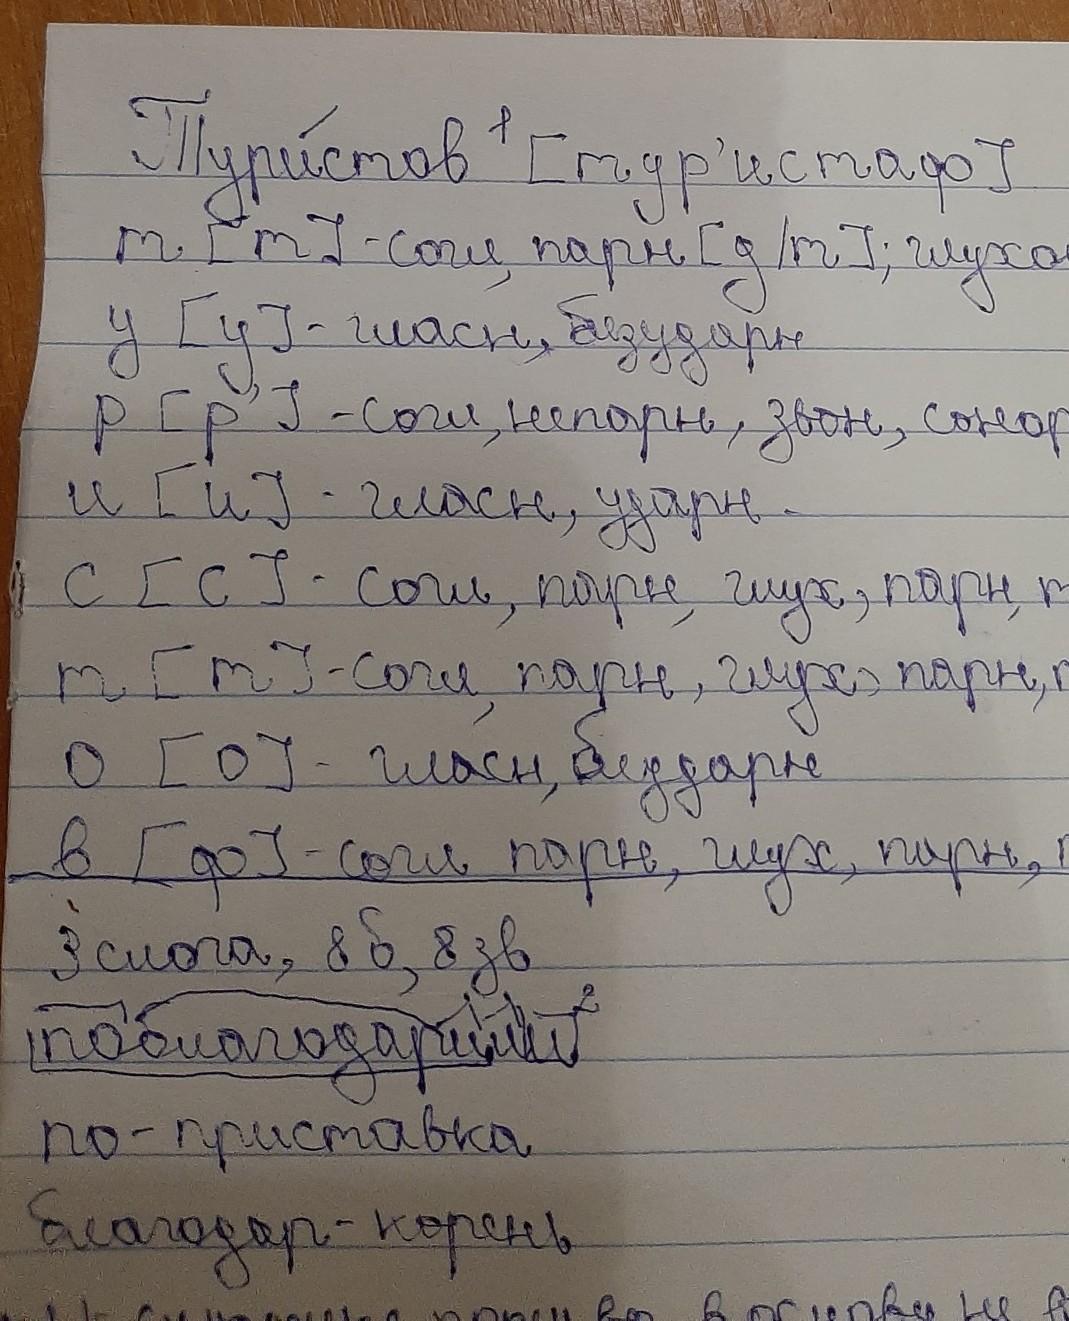 Тури́стов ¹ [тур'истаф]
т [т]-согл, парн [д/т]; глухо
у [у]- гласн, безударн
р [р']-согл, непарн, звон, сонор
и [и] - гласн, ударн
с [с]- согл, парн, глух, парн, т
т [т]-согл, парн, глух, парн, т
о [о]- гласн, безударн
в [ф]-согл парн, глух, парн, т
3 слога, 8 б, 8 зв
поблагодарили²
по-приставка
благодар-корень